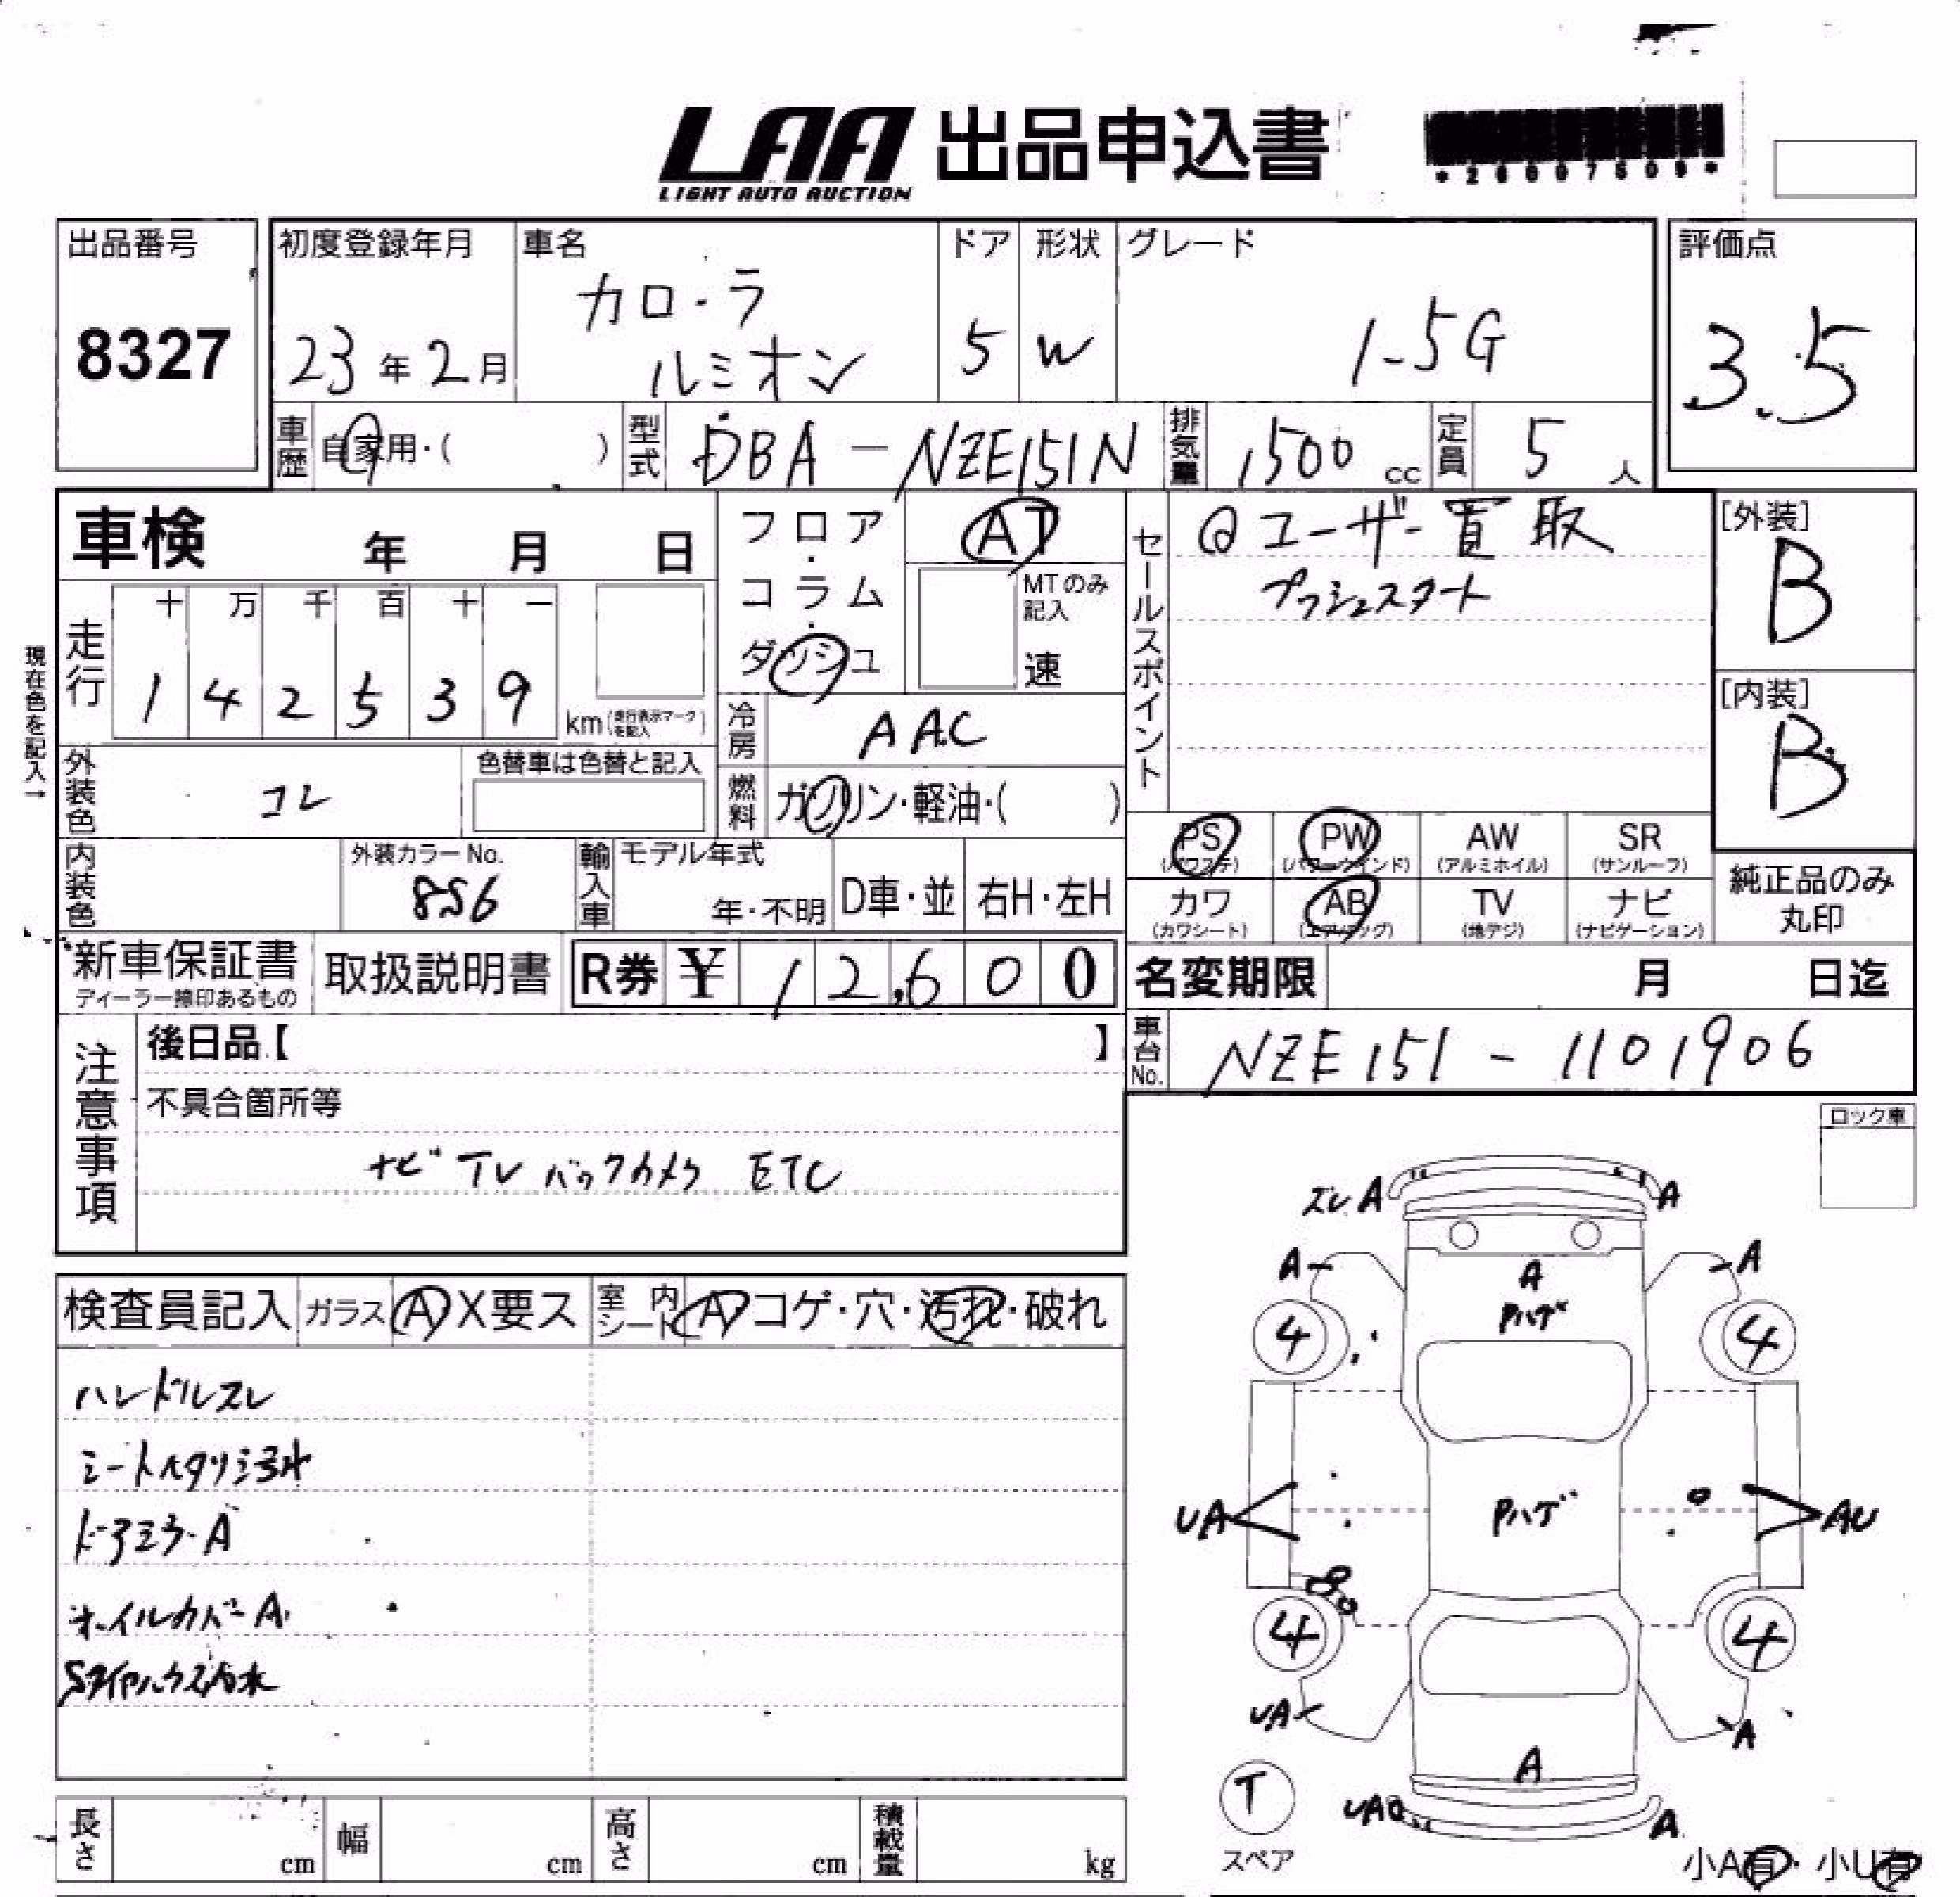 LAA 出品申込書
LIGHT AUTO AUCTION
出品番号
8327
初度登録年月
23年2月
車名
カローラ
ルミオン
ドア
5
形状
W
グレード
1-5G
評価点
3.5
車歴 自家用・( )
型式 DBA-NZE151N
排気量 1500 cc
定員 5 人
車検 年 月 日
フロア・コラム・ダッシュ
AT
MTのみ記入
速
セールスポイント
@ユーザー買取
プッシュスタート
[外装]
B
[内装]
B
現在色を記入→
走行
十 万 千 百 十 一
1 4 2 5 3 9
km(走行表示マークを記入)
冷房 AAC
外装色 コン
色替車は色替と記入
燃料 ガソリン・軽油・( )
PS (パワステ)
PW (パワーウインド)
AW (アルミホイル)
SR (サンルーフ)
内装色
外装カラーNo.
856
輸入車 モデル年式
年・不明
D車・並
右H・左H
カワ (カワシート)
AB (エアバッグ)
TV (地デジ)
ナビ (ナビゲーション)
純正品のみ
丸印
新車保証書
ディーラー捺印あるもの
取扱説明書
R券 ¥ 12,600
名変期限 月 日迄
注意事項
後日品【 】
車台No. NZE151-1101906
不具合箇所等
ナビ TV バックカメラ ETC
ロック車
検査員記入 ガラス A X要ス 室内シート A コゲ・穴・汚れ・破れ
ハンドルスレ
シートヘタリ汚れ
ドアミラーA
ホイルカバーA
ズレ A
A
A
A
A
Pハゲ
4
4
UA
Pハゲ
AU
4
4
UA
A
A
T
スペア
UA
A
小A有・小U有
長さ cm
幅 cm
高さ cm
積載量 kg